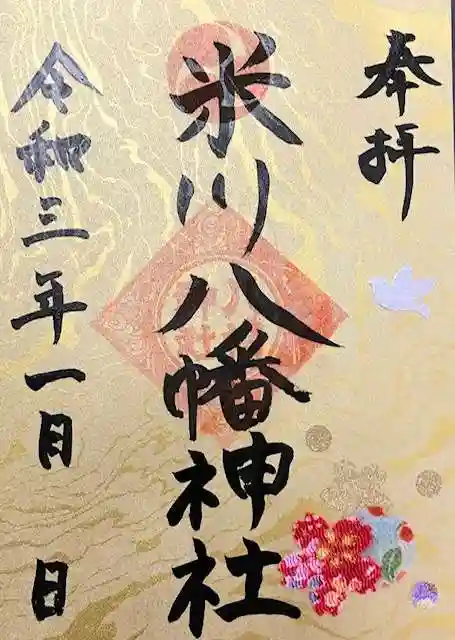 奉拝
氷川八幡神社
令和三年一月 日